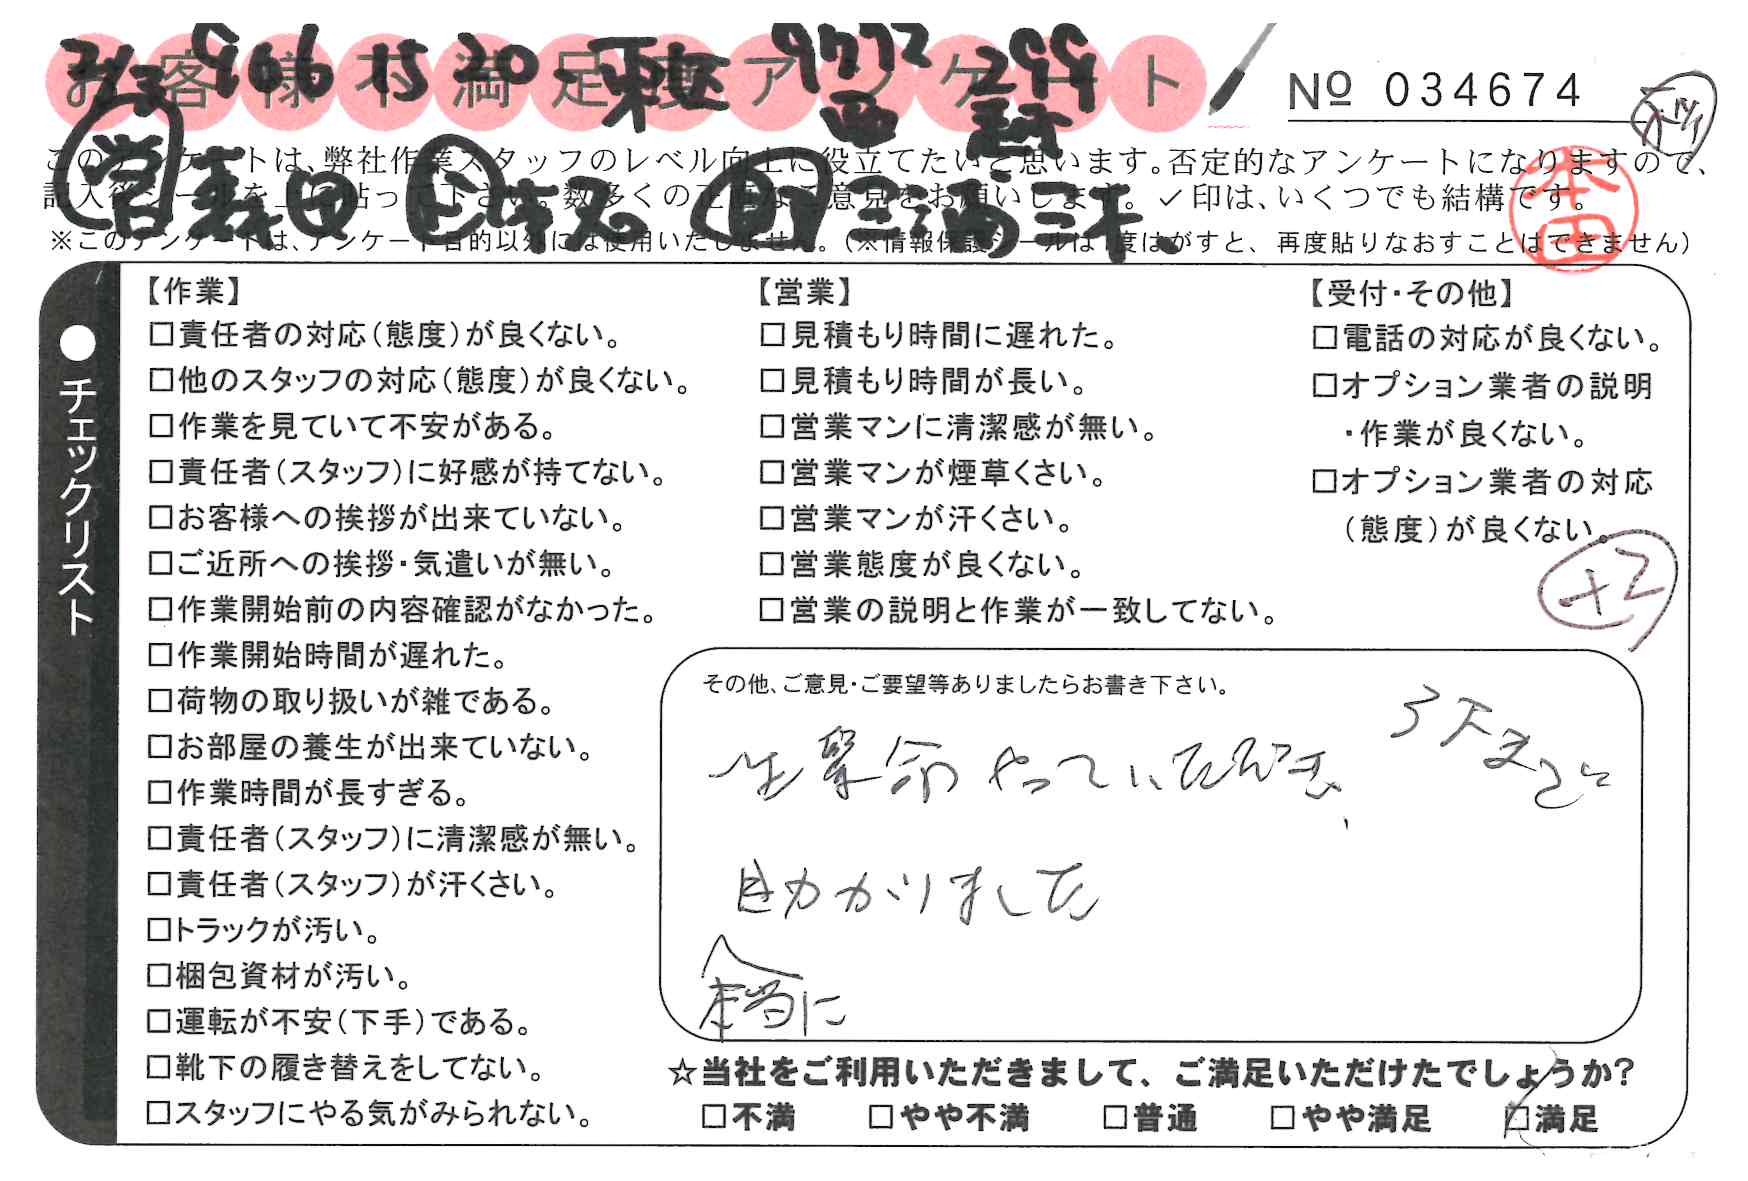 お客様不満足度アンケート
№ 034674
このアンケートは、弊社作業スタッフのレベル向上に役立てたいと思います。否定的なアンケートになりますので、
記入後シールを上に貼って下さい。数多くの正直なご意見をお願いします。✓印は、いくつでも結構です。
※このアンケートは、アンケート目的以外には使用いたしません。(※情報保護シールは1度はがすと、再度貼りなおすことはできません)
本田
●チェックリスト
【作業】
□責任者の対応(態度)が良くない。
□他のスタッフの対応(態度)が良くない。
□作業を見ていて不安がある。
□責任者(スタッフ)に好感が持てない。
□お客様への挨拶が出来ていない。
□ご近所への挨拶・気遣いが無い。
□作業開始前の内容確認がなかった。
□作業開始時間が遅れた。
□荷物の取り扱いが雑である。
□お部屋の養生が出来ていない。
□作業時間が長すぎる。
□責任者(スタッフ)に清潔感が無い。
□責任者(スタッフ)が汗くさい。
□トラックが汚い。
□梱包資材が汚い。
□運転が不安(下手)である。
□靴下の履き替えをしてない。
□スタッフにやる気がみられない。
【営業】
□見積もり時間に遅れた。
□見積もり時間が長い。
□営業マンに清潔感が無い。
□営業マンが煙草くさい。
□営業マンが汗くさい。
□営業態度が良くない。
□営業の説明と作業が一致してない。
【受付・その他】
□電話の対応が良くない。
□オプション業者の説明
・作業が良くない。
□オプション業者の対応
(態度)が良くない。
+2
その他、ご意見・ご要望等ありましたらお書き下さい。
やっていただき、
助かりました
本当に
☆当社をご利用いただきまして、ご満足いただけたでしょうか?
□不満 □やや不満 □普通 □やや満足 □満足